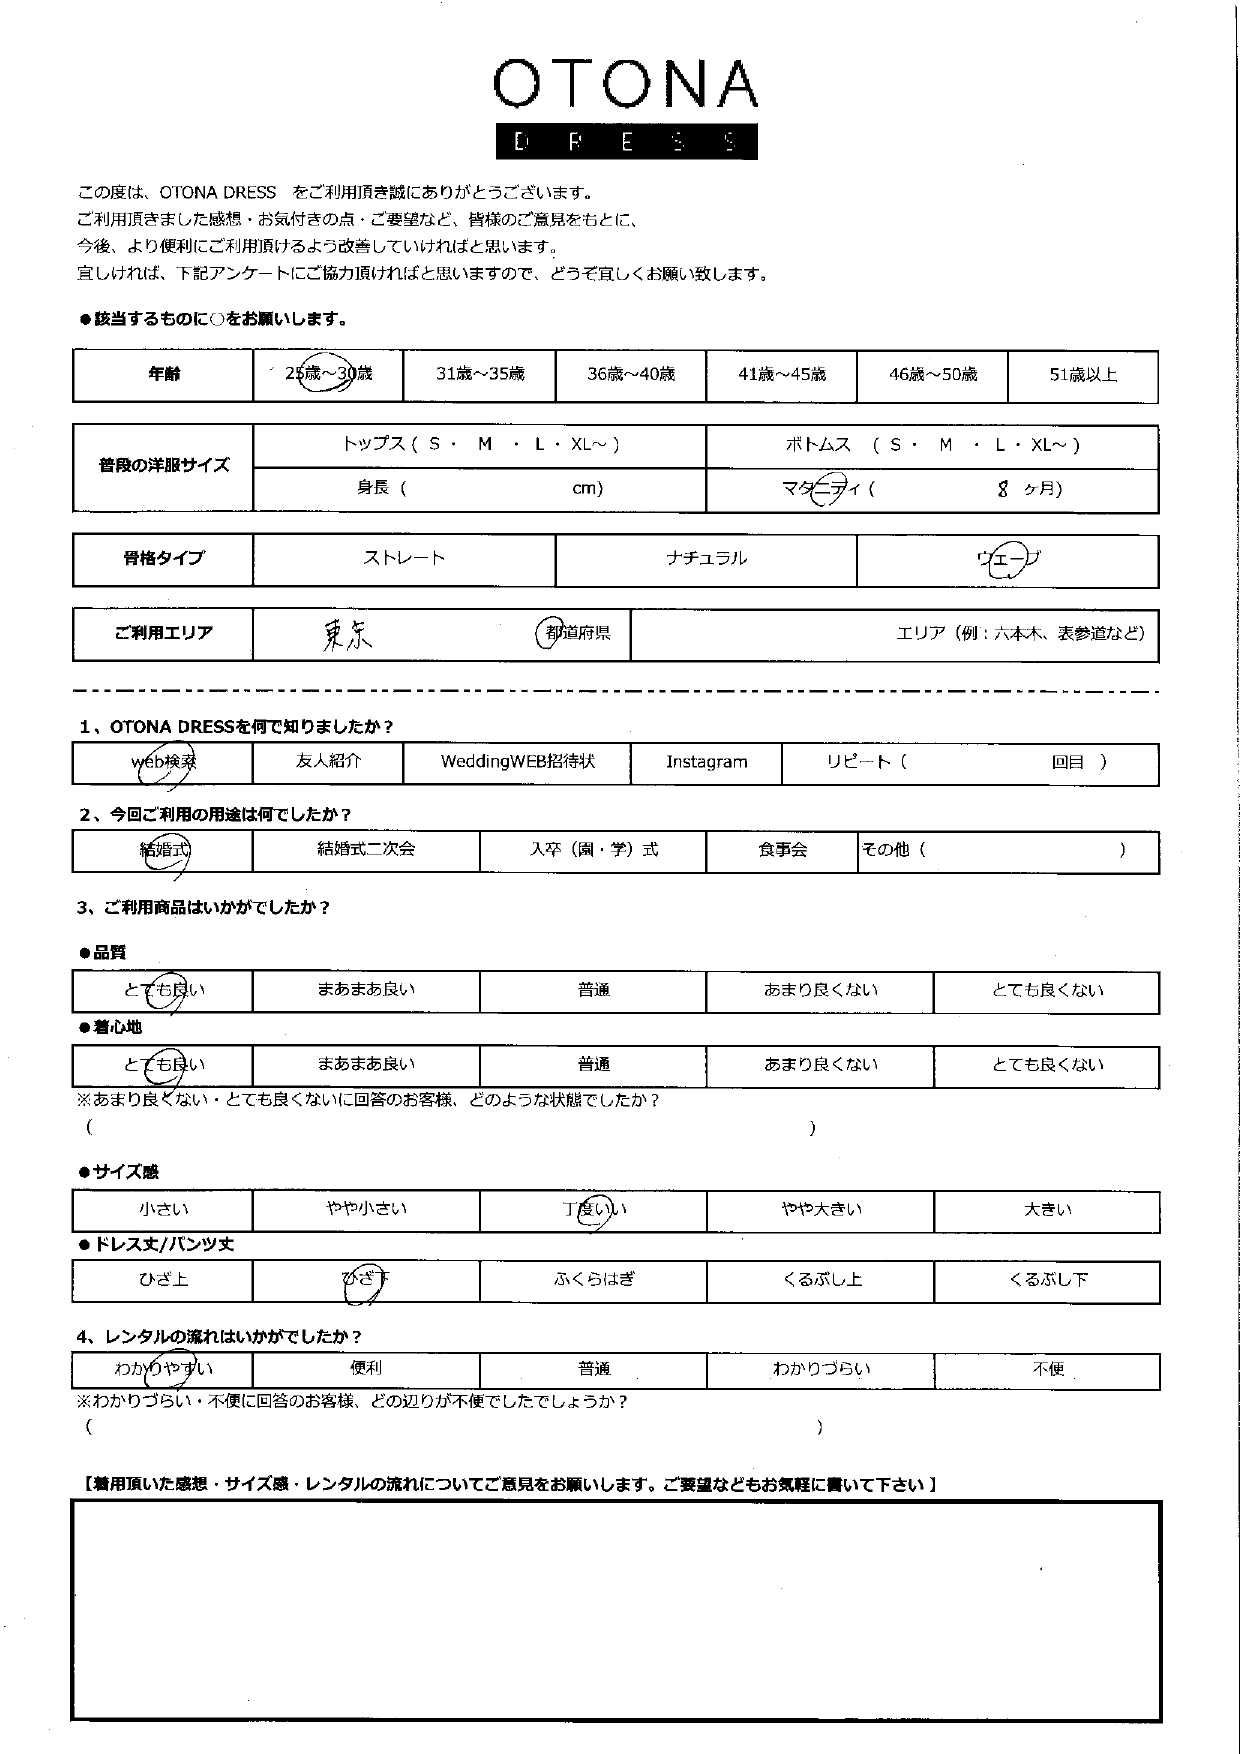 OTONA
DRESS
この度は、OTONA DRESS　をご利用頂き誠にありがとうございます。
ご利用頂きました感想・お気付きの点・ご要望など、皆様のご意見をもとに、
今後、より便利にご利用頂けるよう改善していければと思います。
宜しければ、下記アンケートにご協力頂ければと思いますので、どうぞ宜しくお願い致します。
●該当するものに○をお願いします。
年齢 25歳～30歳 31歳～35歳 36歳～40歳 41歳～45歳 46歳～50歳 51歳以上
普段の洋服サイズ トップス ( S ・ M ・ L ・ XL～ ) ボトムス ( S ・ M ・ L ・ XL～ )
身長 ( cm) マタニティ ( 8 ヶ月)
骨格タイプ ストレート ナチュラル ウェーブ
ご利用エリア 東京 都道府県 エリア（例：六本木、表参道など）
1、OTONA DRESSを何で知りましたか？
web検索 友人紹介 WeddingWEB招待状 Instagram リピート ( 回目 )
2、今回ご利用の用途は何でしたか？
結婚式 結婚式二次会 入卒（園・学）式 食事会 その他 ( )
3、ご利用商品はいかがでしたか？
●品質
とても良い まあまあ良い 普通 あまり良くない とても良くない
●着心地
とても良い まあまあ良い 普通 あまり良くない とても良くない
※あまり良くない・とても良くないに回答のお客様、どのような状態でしたか？
( )
●サイズ感
小さい やや小さい 丁度いい やや大きい 大きい
●ドレス丈/パンツ丈
ひざ上 ひざ下 ふくらはぎ くるぶし上 くるぶし下
4、レンタルの流れはいかがでしたか？
わかりやすい 便利 普通 わかりづらい 不便
※わかりづらい・不便に回答のお客様、どの辺りが不便でしたでしょうか？
( )
【着用頂いた感想・サイズ感・レンタルの流れについてご意見をお願いします。ご要望などもお気軽に書いて下さい】